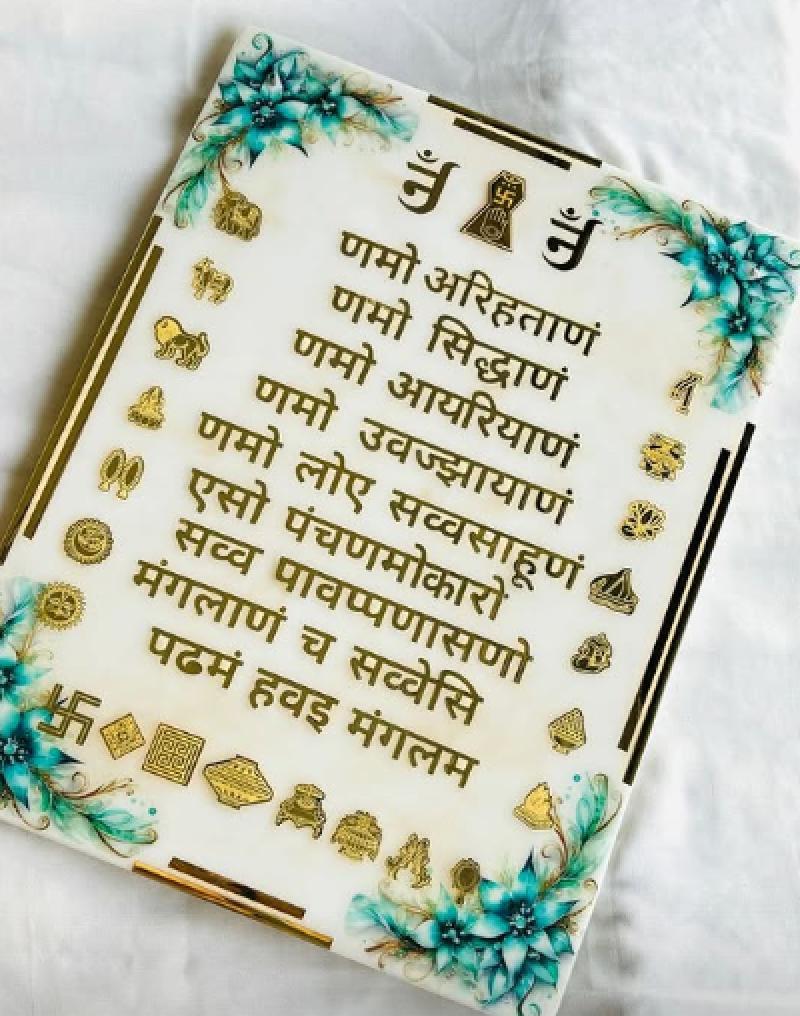 णमो अरिहताणं
णमो सिद्धाणं
णमो आयरियाणं
णमो उवज्झायाणं
णमो लोए सव्वसाहूणं
एसो पंचणमोकारो
सव्व पावप्पणासणो
मंगलाणं च सव्वेसि
पढमं हवइ मंगलम